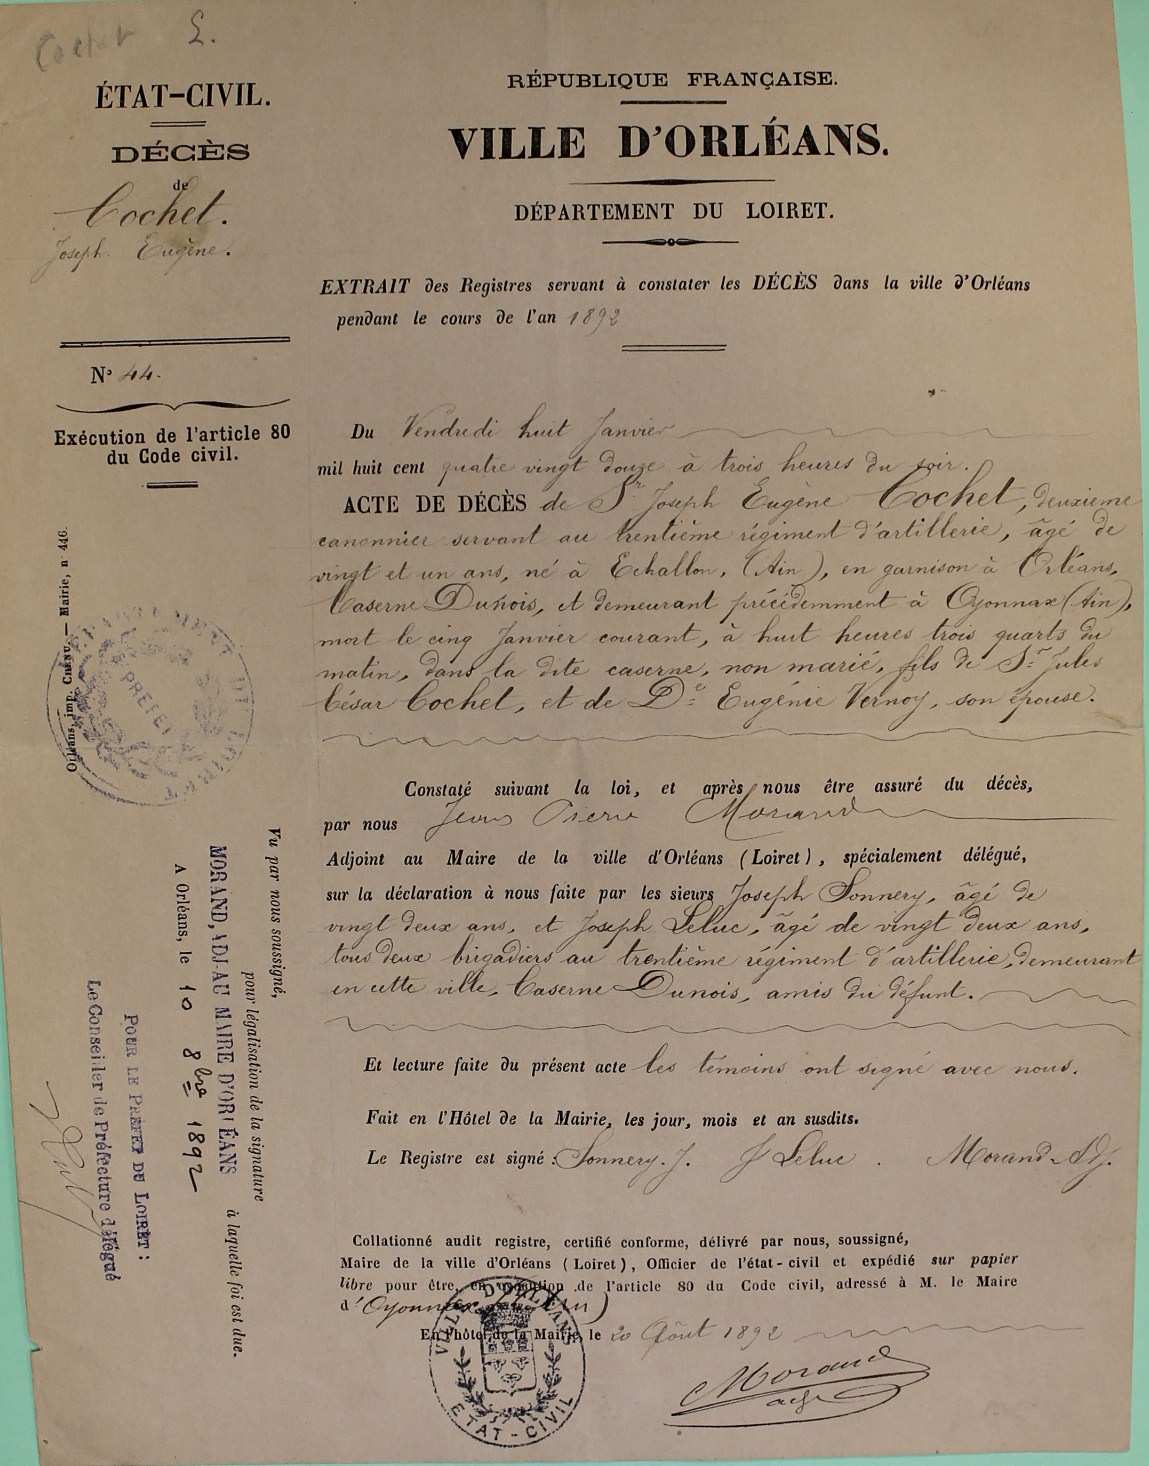 Cochet L.
ÉTAT-CIVIL.
DÉCÈS
de
Cochet.
Joseph Eugène.
N° 44.
Exécution de l'article 80
du Code civil.
Orléans, imp. — Mairie, n 446.
RÉPUBLIQUE FRANÇAISE.
VILLE D'ORLÉANS.
DÉPARTEMENT DU LOIRET.
EXTRAIT des Registres servant à constater les DÉCÈS dans la ville d'Orléans
pendant le cours de l'an 1892
Du Vendredi huit Janvier
mil huit cent quatre vingt douze à trois heures du soir.
ACTE DE DÉCÈS de Sr Joseph Eugène Cochet, deuxieme
canonnier servant au trentième régiment d'artillerie, âgé de
vingt et un ans, né à Echallon, (Ain), en garnison à Orléans,
Caserne Dunois, et demeurant précédemment à Oyonnax (Ain),
mort le cinq Janvier courant, à huit heures trois quarts du
matin, dans la dite caserne, non marié, fils de Sr Jules
César Cochet, et de De Eugénie Vernoy, son épouse.
Constaté suivant la loi, et après nous être assuré du décès,
par nous Jean Pierre Morand
Adjoint au Maire de la ville d'Orléans (Loiret), spécialement délégué,
sur la déclaration à nous faite par les sieurs Joseph Sonnery, âgé de
vingt deux ans, et Joseph Leluc, âgé de vingt deux ans,
tous deux brigadiers au trentième régiment d'artillerie, demeurant
en cette ville, Caserne Dunois, amis du défunt.
Et lecture faite du présent acte les témoins ont signé avec nous.
Fait en l'Hôtel de la Mairie, les jour, mois et an susdits.
Le Registre est signé : Sonnery. J. J Leluc . Morand-Adj.
Collationné audit registre, certifié conforme, délivré par nous, soussigné,
Maire de la ville d'Orléans (Loiret), Officier de l'état-civil et expédié sur papier
libre pour être, en exécution de l'article 80 du Code civil, adressé à M. le Maire
d'Oyonnax (Ain)
En l'hôtel de la Mairie, le 20 Août 1892
Morand
adj
VILLE D'ORLÉANS
ETAT-CIVIL
Vu par nous soussigné,
pour légalisation de la signature
MORAND, ADJ. AU MAIRE D'ORLÉANS à laquelle foi est due.
A Orléans, le 10 8bre 1892
POUR LE PRÉFET DU LOIRET :
Le Conseiller de Préfecture délégué